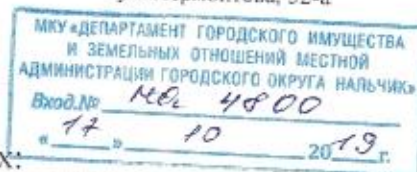 МКУ «ДЕПАРТАМЕНТ ГОРОДСКОГО ИМУЩЕСТВА
И ЗЕМЕЛЬНЫХ ОТНОШЕНИЙ МЕСТНОЙ
АДМИНИСТРАЦИИ ГОРОДСКОГО ОКРУГА НАЛЬЧИК»
Вход.№ 4800
« 17 » 10 2019 г.
х: